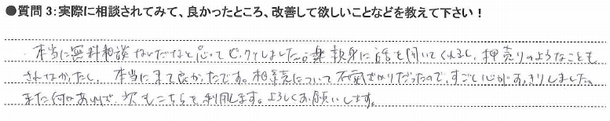 ●質問3:実際に相談されてみて、良かったところ、改善して欲しいことなどを教えて下さい!
本当に無料相談なんだなと思ってビックリしました。親身に話を聞いてくれるし、押売りのようなことも
されなかったし、本当に来て良かったです。相続について不安ばかりだったので、すごく心がスッキリしました。
また何かあれば、次もこちらを利用します。よろしくお願いします。